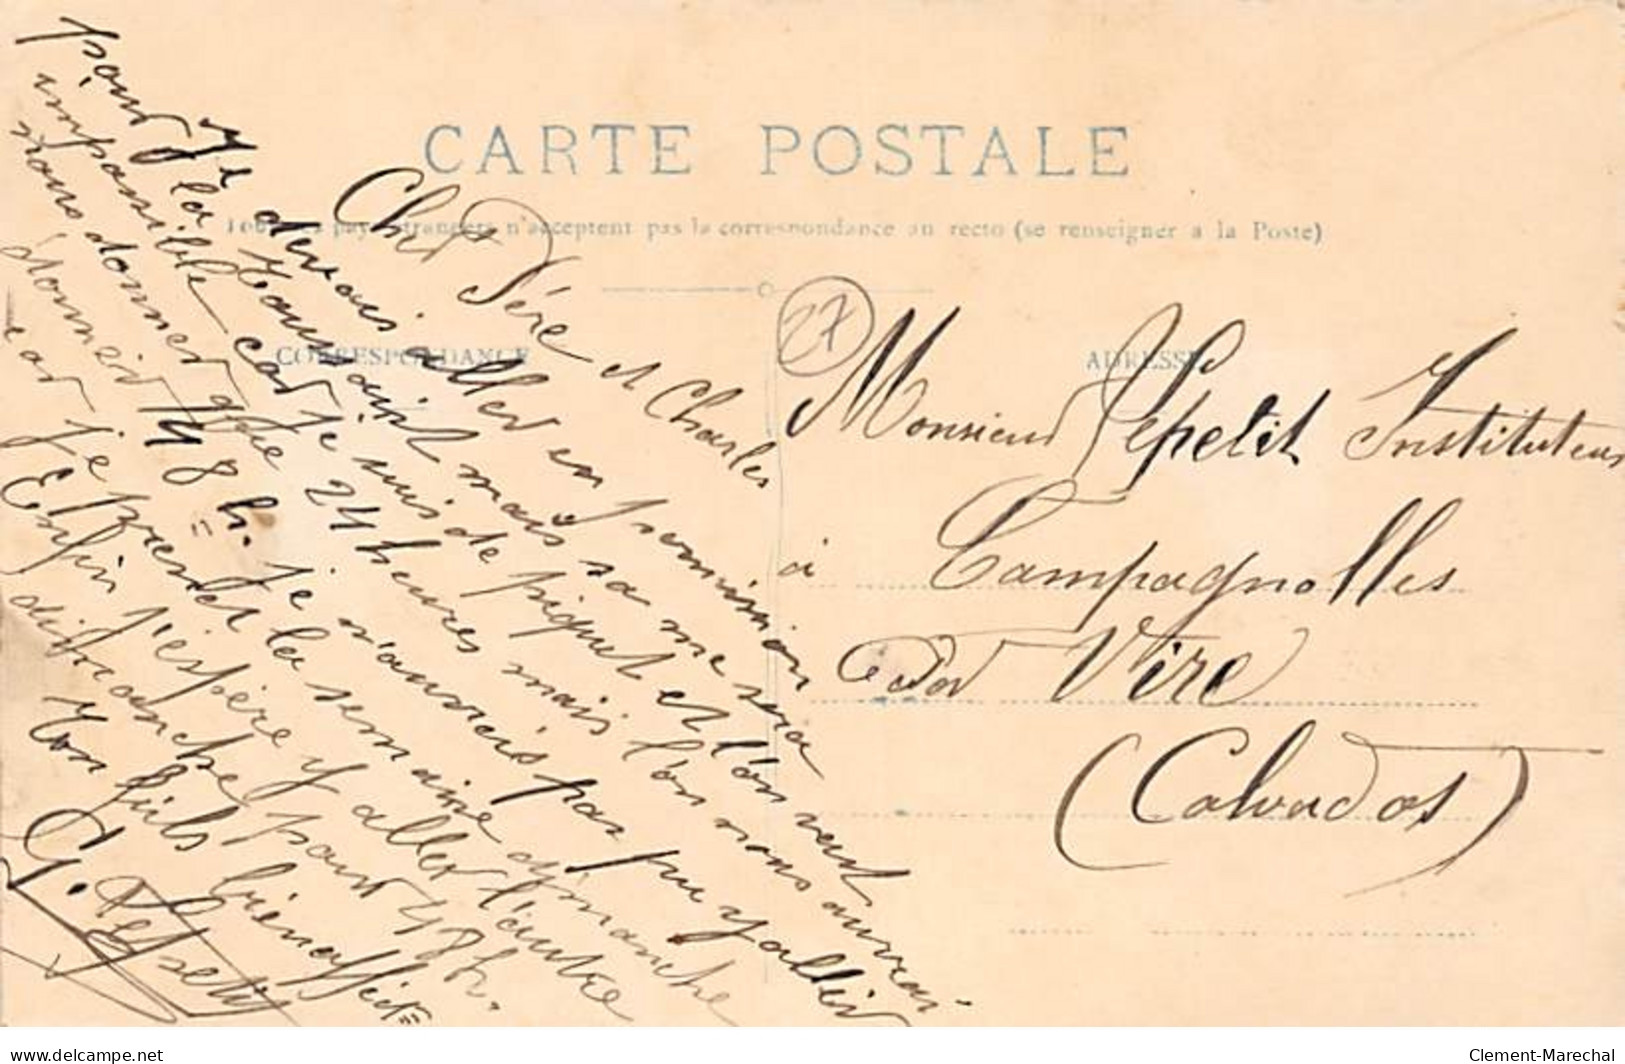 CARTE POSTALE
Tous les pays étrangers n'acceptent pas la correspondance au recto (se renseigner a la Poste)
CORRESPONDANCE
ADRESSE
27
Cher Père et Charles
Je devais aller en permission
pour la Toussaint mais sa me sera
impossible car je suis de piquet et l'on veut
nous donner que 24 heures mais l'on nous aurai
donner 48 h. je n'aurais pas pu y aller
car je prend la semaine dimanche
Enfin j'espère y aller l'autre
dimanche pour 48 h.
Ton fils bien affect
G. Lepetit
Monsieur Lepetit Instituteur
à Campagnolles
par Vire
(Calvados)
www.delcampe.net
Clement-Marechal